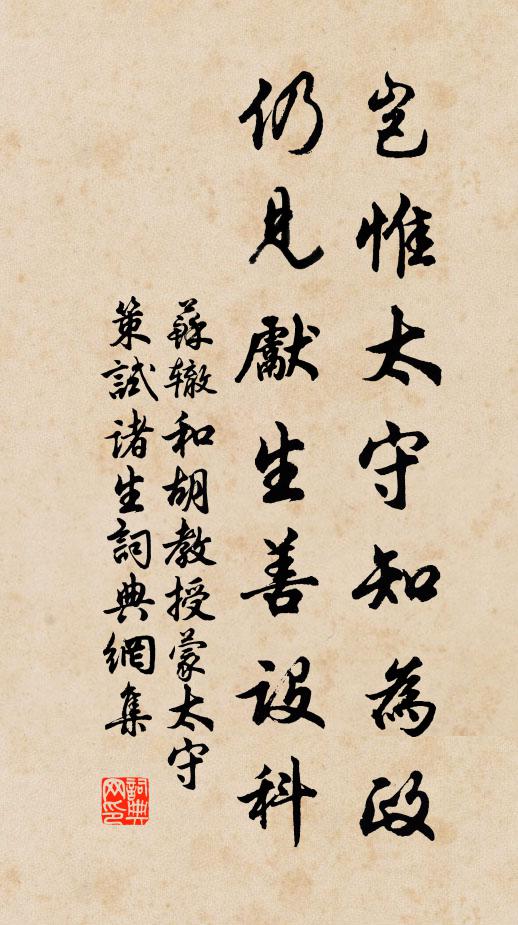 豈惟太守知為政
仍見獻生善設科
蘇辙和胡教授蒙太守
策試诸生詞典網集
詞典网印